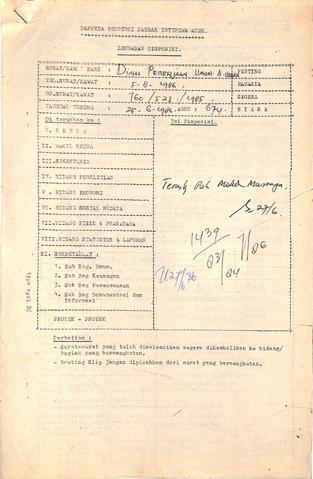 BAPPEDA PROPINSI DAERAH ISTIMEWA ACEH.
LEMBARAN DISPOSISI.
SURAT/KAWAT DARI : Dinas Pekerjaan Umum PENTING
TGL.SURAT/KAWAT : 5-8-1986. RAHASIA
NO.SURAT/KAWAT : 760/523/1985. SEGERA
TANGGAL TERIMA : 25-6-1986. AGNO: 674 BIASA
Di teruskan ke : Isi Disposisi.
I. KETUA
II. WAKIL KETUA
III. SEKRETARIS
IV. BIDANG PENELITIAN
V. BIDANG EKONOMI
VI. BIDANG SOSIAL BUDAYA
VII. BIDANG FISIK & PRASARANA
VIII. BIDANG STATISTIK & LAPORAN
XI. SEKRETARIAT :
1. Sub Bag. Umum.
2. Sub Bag Keuangan
3. Sub Bag Perencanaan
4. Sub Bag Dokumentasi dan
Informasi
PROYEK - PROYEK
27/6.
1439
03/04
7/86
27/6
86
Perhatian :
- Surat-surat yang telah diselesaikan segera dikembalikan ke bidang/
bagian yang bersangkutan.
- Routing Slip jangan dipisahkan dari surat yang bersangkutan.